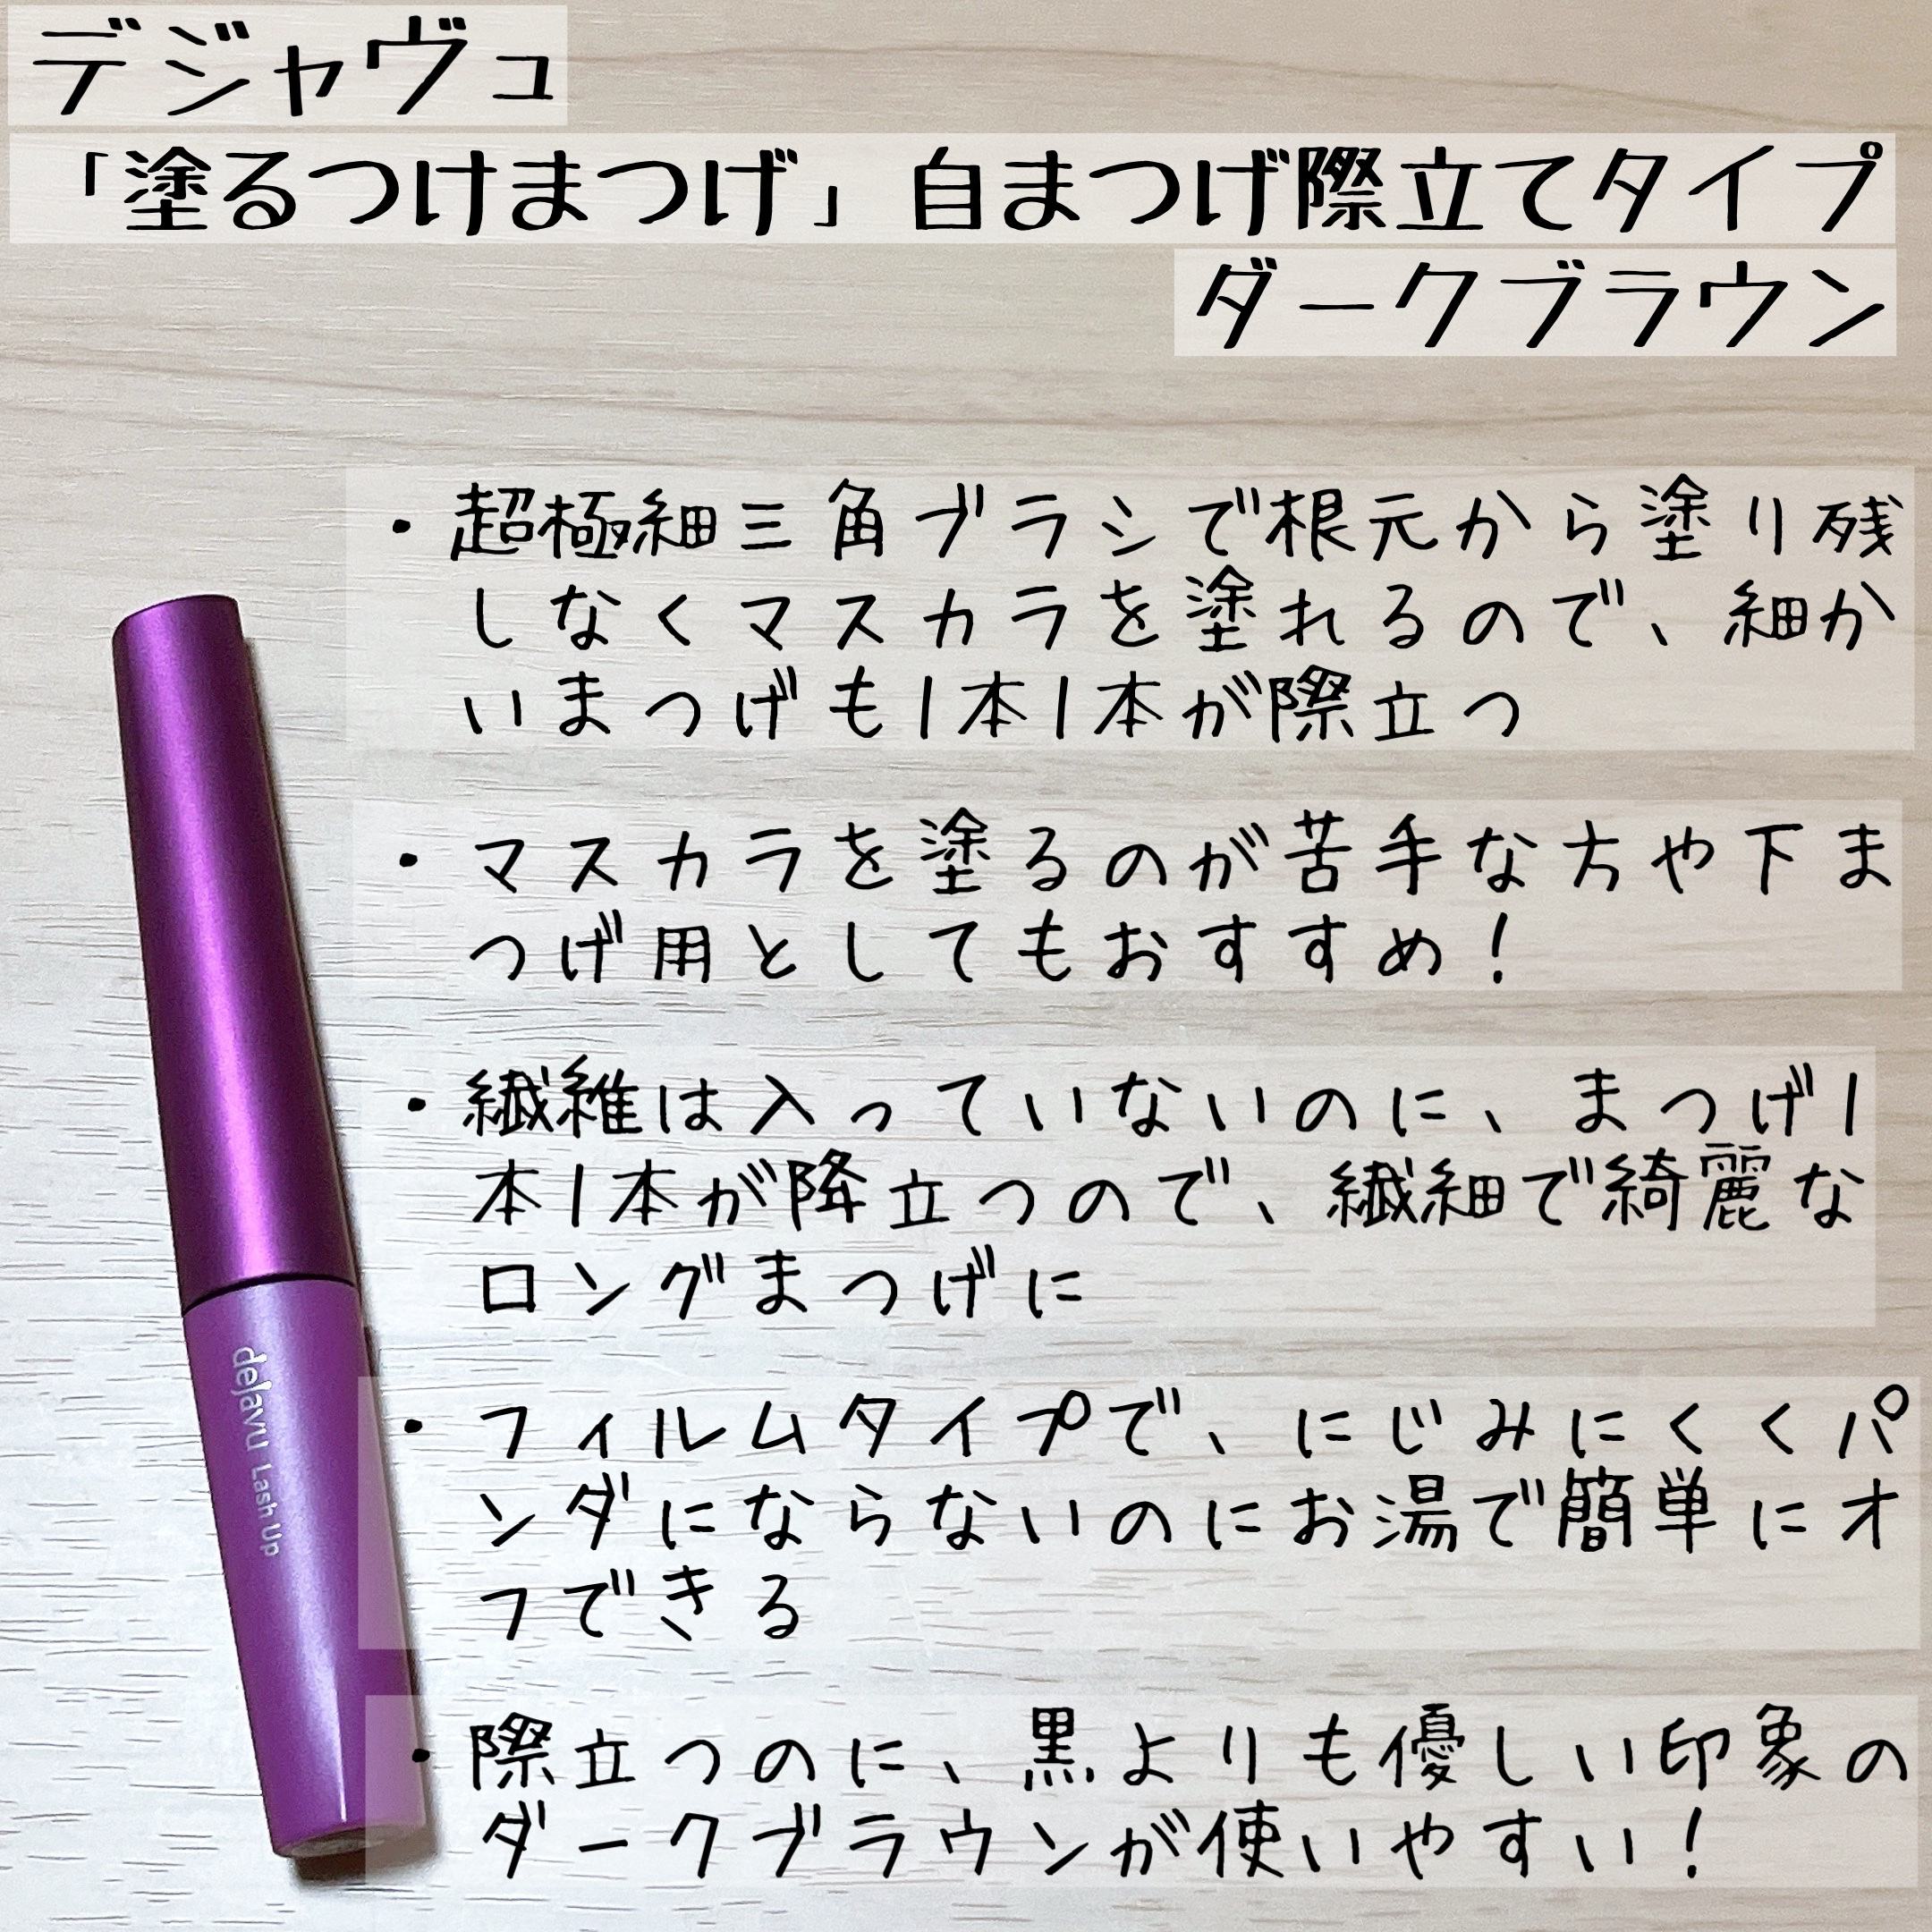 デジャヴュ
「塗るつけまつげ」自まつげ際立てタイプ
ダークブラウン
・超極細三角ブラシで根元から塗り残
しなくマスカラを塗れるので、細か
いまつげも1本1本が際立つ
・マスカラを塗るのが苦手な方や下ま
つげ用としてもおすすめ！
・繊維は入っていないのに、まつげ1
本1本が降立つので、繊細で綺麗な
ロングまつげに
・フィルムタイプで、にじみにくくパ
ンダにならないのにお湯で簡単にオ
フできる
・際立つのに、黒よりも優しい印象の
ダークブラウンが使いやすい！
dejavu Lash Up